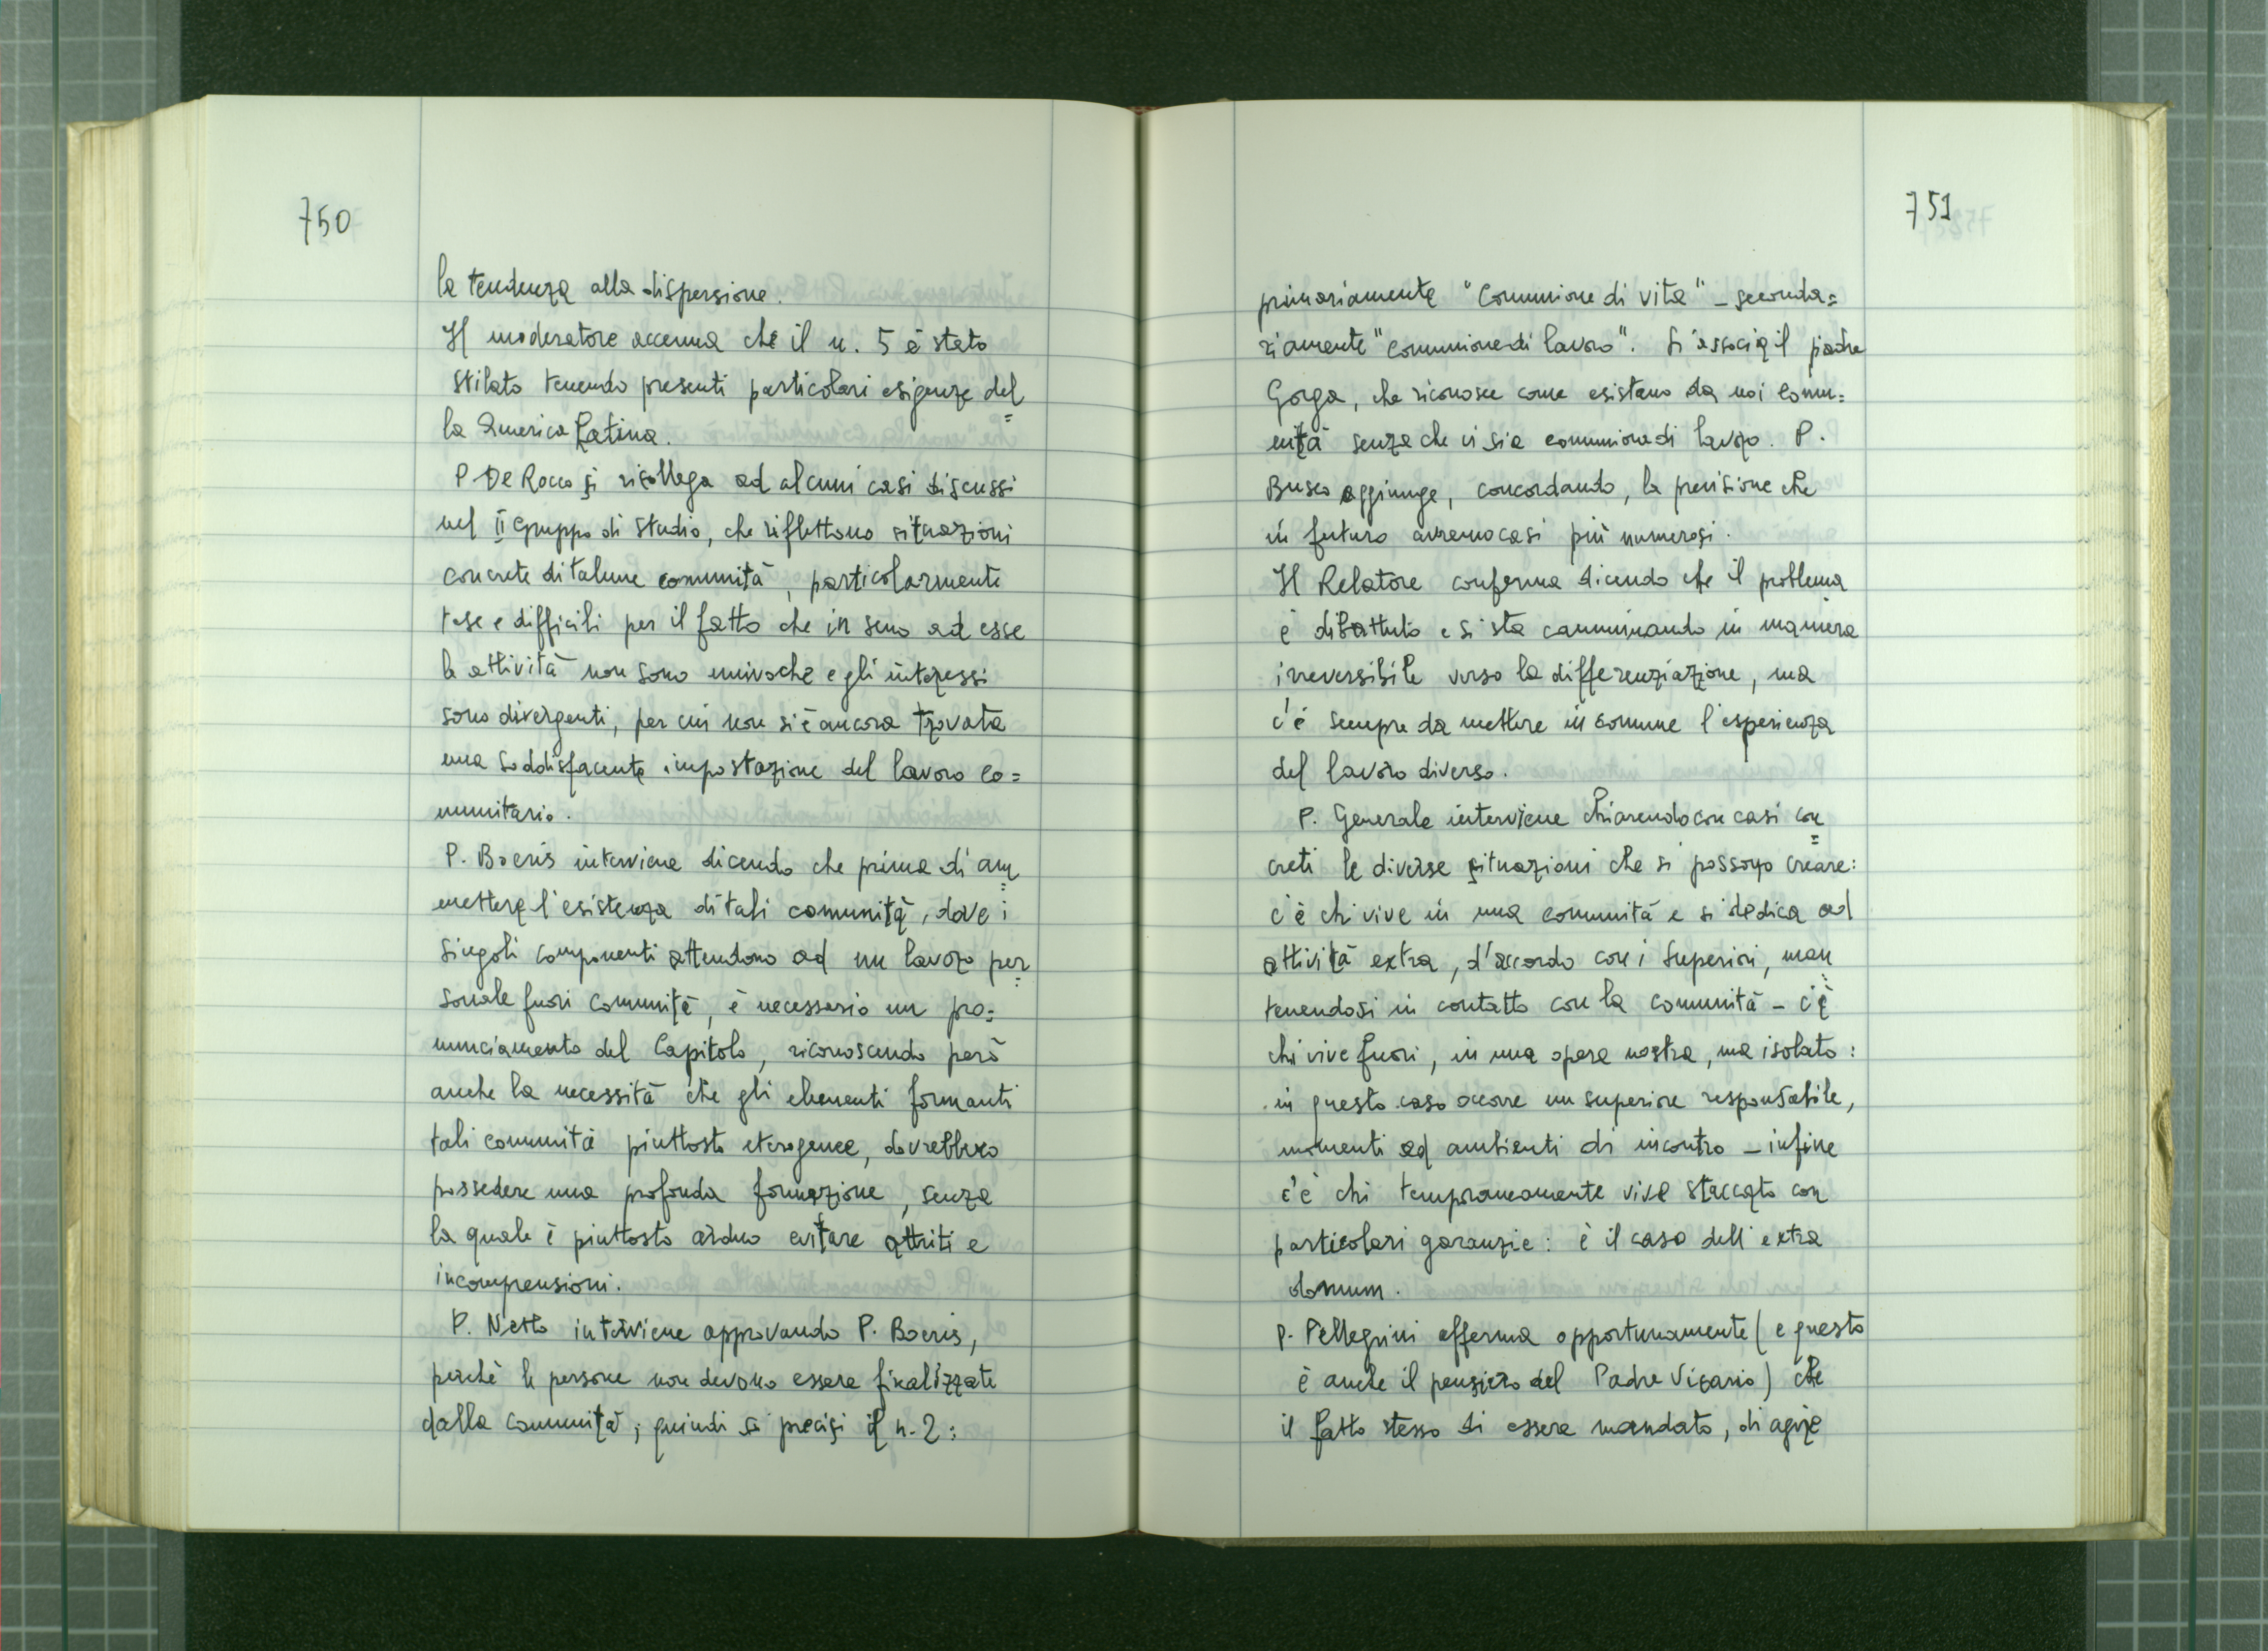 750
la tendenza alla dispersione.
Il moderatore accenna che il n. 5 è stato
stilato tenendo presenti particolari esigenze del=
la America Latina.
P. De Rocco si ricollega ad alcuni casi discussi
nel II Gruppo di studio, che riflettono situazioni
concrete di talune comunità, particolarmente
tese e difficili per il fatto che in seno ad esse
le attività non sono univoche e gli interessi
sono divergenti, per cui non si è ancora trovata
una soddisfacente impostazione del lavoro co=
munitario.
P. Boeris interviene dicendo che prima di am=
mettere l'esistenza di tali comunità, dove i
singoli componenti attendono ad un lavoro per=
sonale fuori comunità, è necessario un pro=
nunciamento del Capitolo, riconoscendo però
anche la necessità che gli elementi formanti
tali comunità piuttosto eterogenee, dovrebbero
possedere una profonda formazione, senza
la quale è piuttosto arduo evitare attriti e
incomprensioni.
P. Netto interviene approvando P. Boeris,
perchè le persone non devono essere finalizzate
dalla comunità; quindi si precisi il n. 2:
751
primariamente "Comunione di vita" - seconda=
riamente "comunione di lavoro". Si associa il padre
Gorga, che riconosce come esistano da noi comu=
nità senza che vi sia comunione di lavoro. P.
Busco aggiunge, concordando, la previsione che
in futuro avremo casi più numerosi.
Il Relatore conferma dicendo che il problema
è dibattuto e si sta camminando in maniera
irreversibile verso la differenziazione, ma
c'è sempre da mettere in comune l'esperienza
del lavoro diverso.
P. Generale interviene chiarendo con casi con=
creti le diverse situazioni che si possono creare:
c'è chi vive in una comunità e si dedica ad
attività extra, d'accordo con i Superiori, man=
tenendosi in contatto con la comunità - c'è
chi vive fuori, in una opera nostra, ma isolato:
in questo caso occorre un superiore responsabile,
momenti ed ambienti di incontro - infine
c'è chi temporaneamente vive staccato con
particolari garanzie: è il caso dell'extra
domum.
P. Pellegrini afferma opportunamente (e questo
è anche il pensiero del Padre Vicario) che
il fatto stesso di essere mandato, di agire